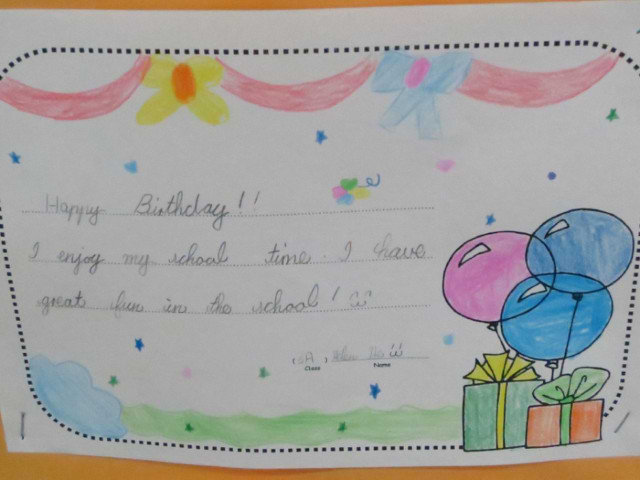 Happy Birthday!!
I enjoy my school time. I have
great fun in the school!
Class Name